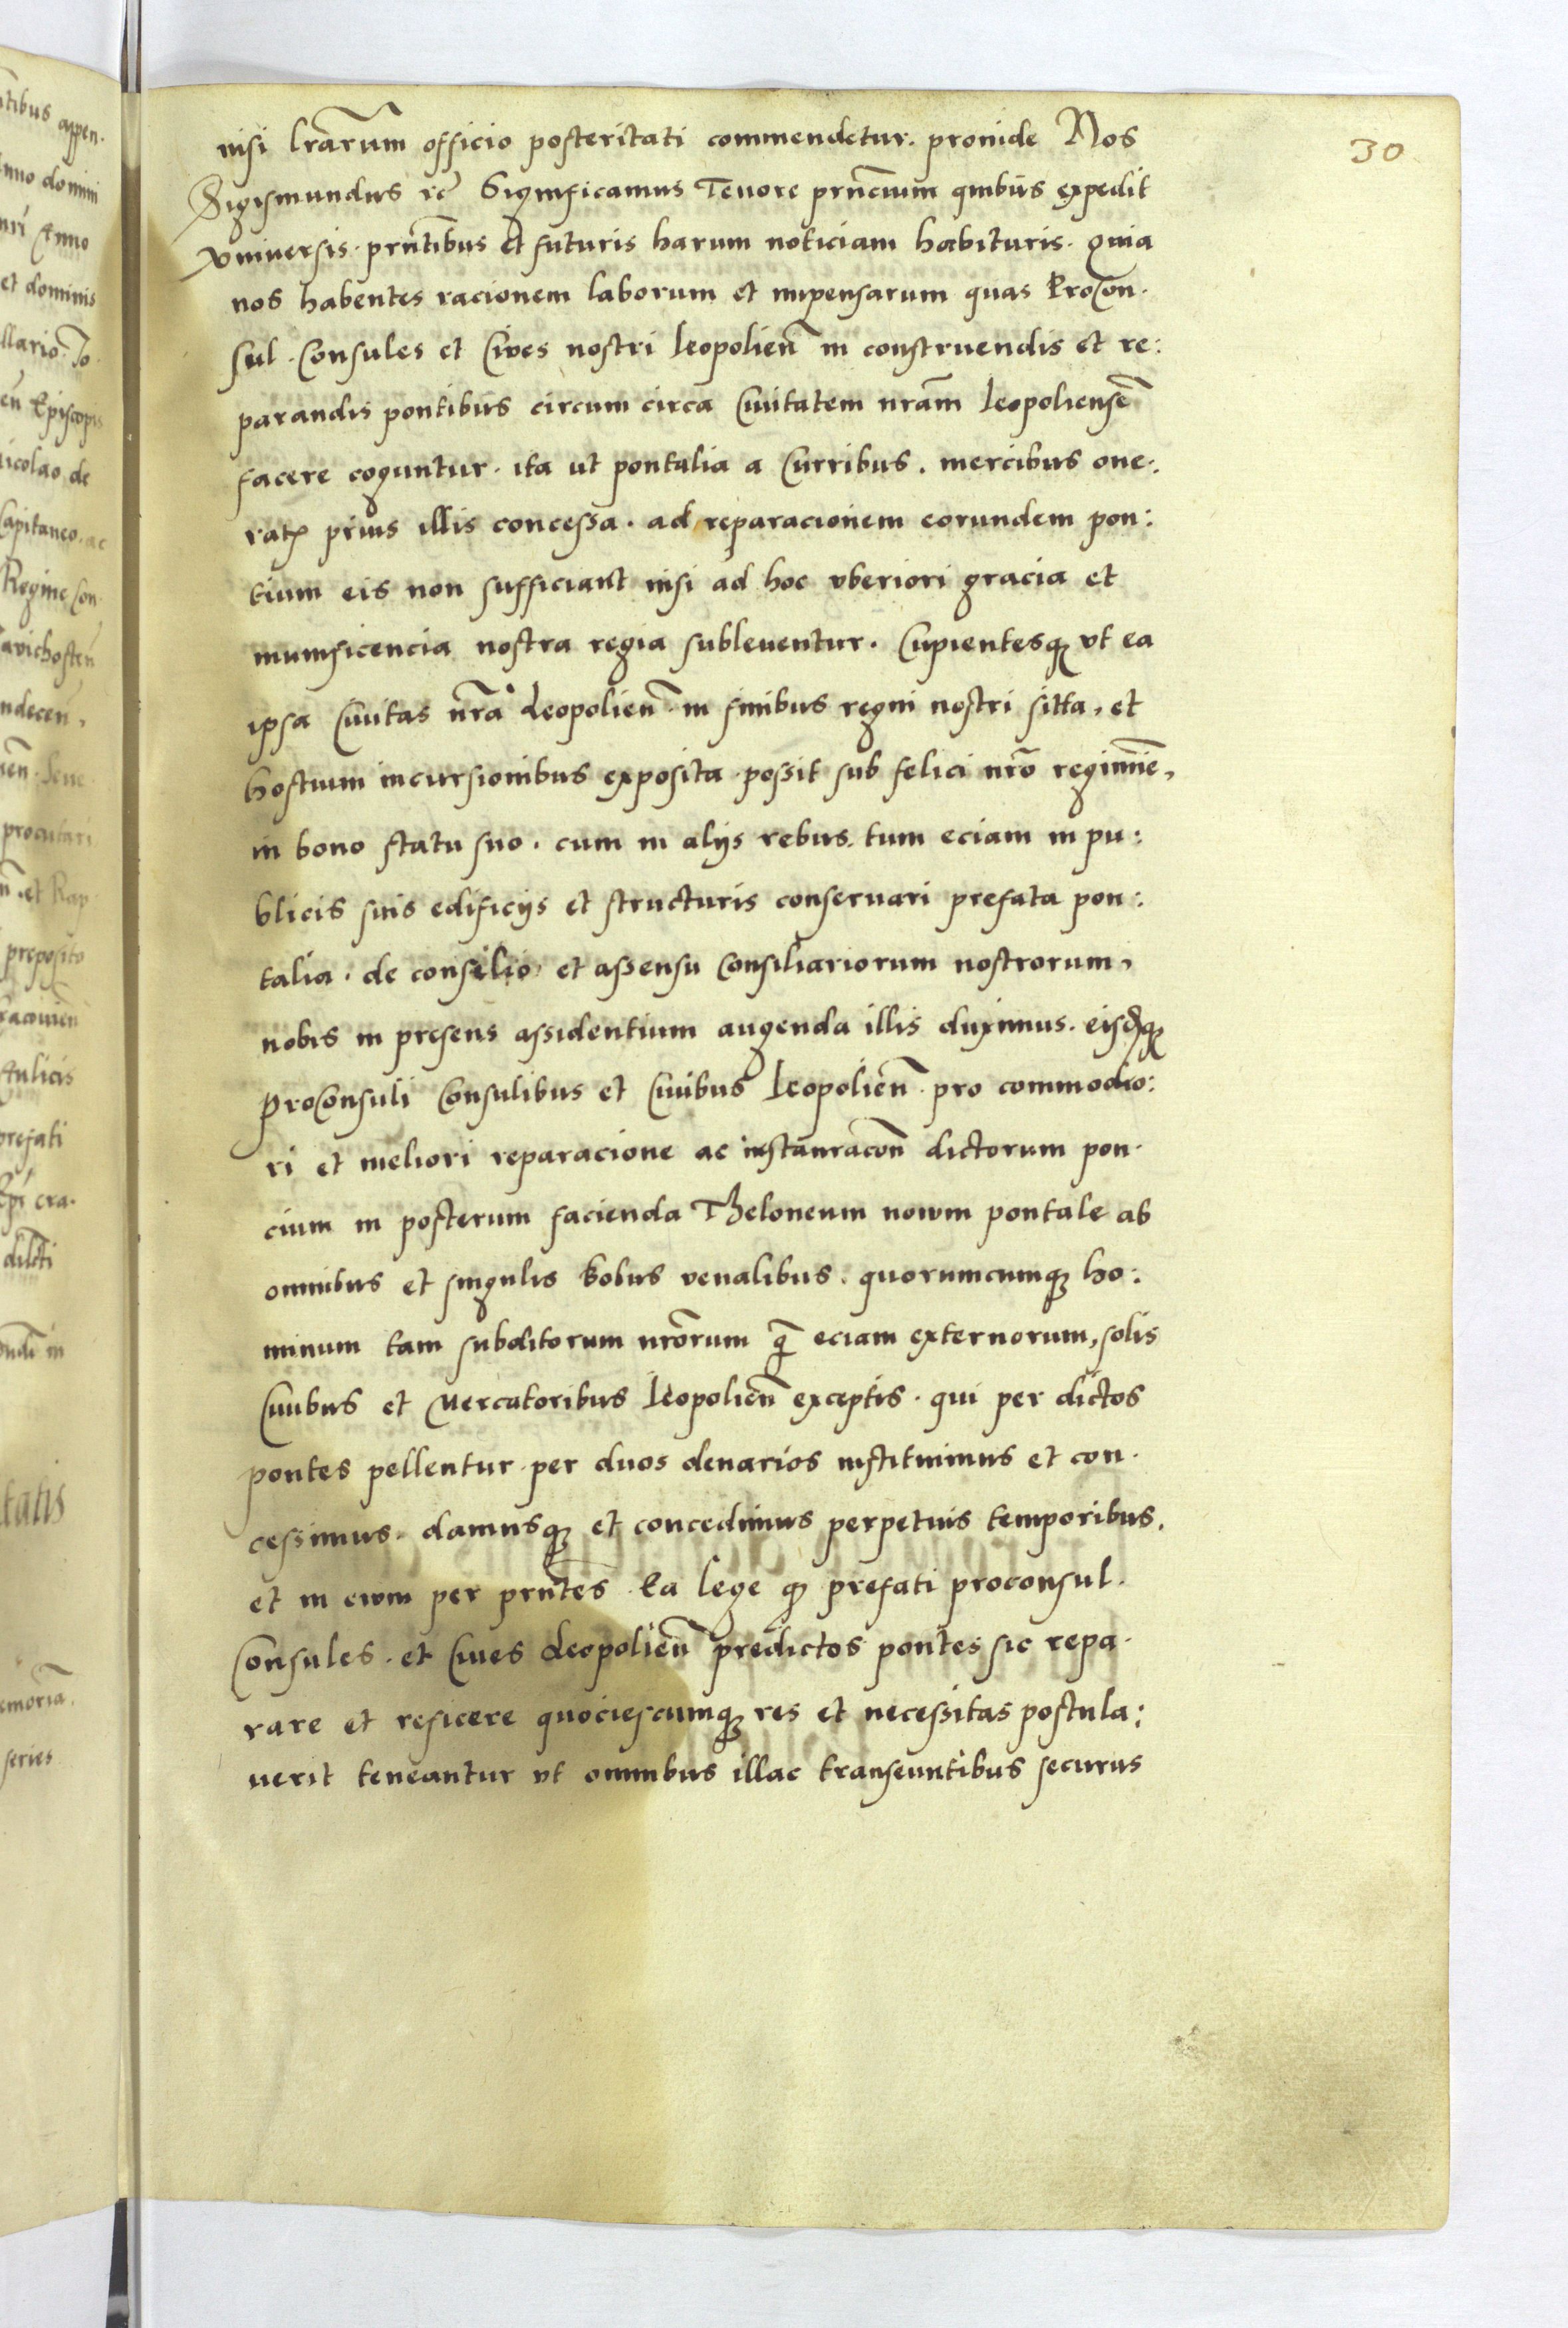 30
nisi lrarum officio posteritati commendetur. proinde Nos
Sigismundus rc Significamus Tenore prncium quibus expedit
vniversis. prntibus et futuris harum noticiam habituris. quia
nos habentes racionem laborum et impensarum quas ProCon.
sul. Consules et Cives nostri leopolien in construendis et re:
parandis pontibus circum circa Civitatem nram leopoliense
facere coguntur. ita ut pontalia a Curribus. mercibus one:
ratis prius illis concessa. ad reparacionem eorundem pon:
tium eis non sufficiant nisi ad hoc vberiori gracia et
munificencia nostra regia subleventur. Cupientesq vt ea
ipsa Civitas nra Leopolien. in finibus regni nostri sitta, et
hostium incursionibus exposita. possit sub felici nro regimine,
in bono statu suo. cum in alijs rebus. tum eciam in pu:
blicis suis edificijs et structuris conservari prefata pon:
talia. de consilio et assensu Consiliariorum nostrorum,
nobis in presens assidentium augenda illis duximus. eisdq
ProConsuli Consulibus et Civibus leopolien. pro commodio:
ri et meliori reparacione ac instauracon dictorum pon.
cium in posterum facienda Theloneum novum pontale ab
omnibus et singulis bobus venalibus. quorumcumq ho:
minum tam subditorum nrorum q eciam externorum, solis
Civibus et Mercatoribus leopolien exceptis. qui per dictos
pontes pellentur. per duos denarios instituimus et con.
cessimus. damusq et concedimus perpetuis temporibus.
et in evum per prntes. Ea lege q prefati proconsul.
Consules. et Cives Leopolien predictos pontes sic repa.
rare et reficere quociescumq res et necessitas postula:
uerit teneantur vt omnibus illac transeuntibus securus